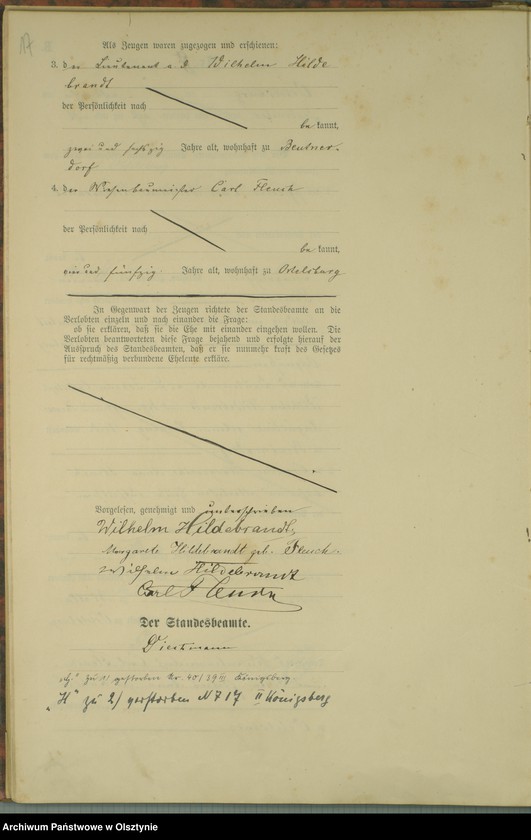 17
Als Zeugen waren zugezogen und erschienen:
3. der Lieutenant a. d. Wilhelm Hilde
brandt
der Persönlichkeit nach
be kannt,
zwei und sechszig Jahre alt, wohnhaft zu Beutner-
dorf
4. der Wiesenbaumeister Carl Flensch
der Persönlichkeit nach
be kannt,
ein und fünfzig Jahre alt, wohnhaft zu Ortelsburg
In Gegenwart der Zeugen richtete der Standesbeamte an die
Verlobten einzeln und nach einander die Frage:
ob sie erklären, daß sie die Ehe mit einander eingehen wollen. Die
Verlobten beantworteten diese Frage bejahend und erfolgte hierauf der
Ausspruch des Standesbeamten, daß er sie nunmehr kraft des Gesetzes
für rechtmäßig verbundene Eheleute erkläre.
Vorgelesen, genehmigt und unterschrieben
Wilhelm Hildebrandt,
Margarete Hildebrandt geb.
Wilhelm Hildebrandt
Carl
Der Standesbeamte.
zu 1) gestorben Nr. 40/39 III Königsberg
„H" zu 2) gestorben N 717 II Königsberg
Archiwum Państwowe w Olsztynie